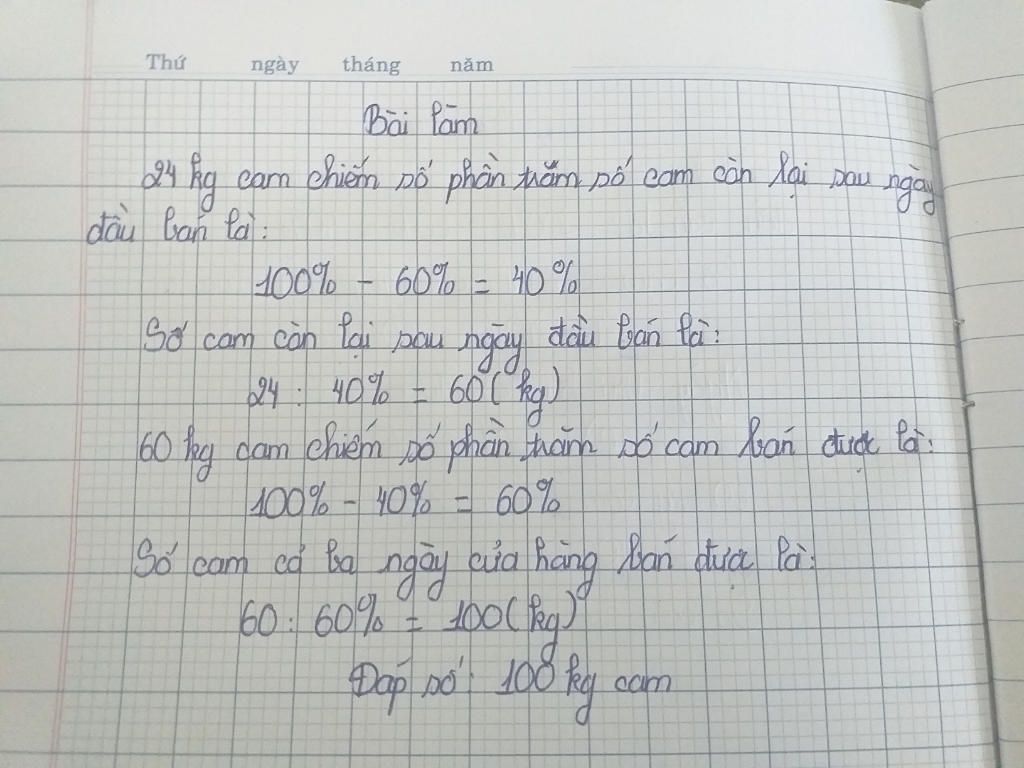 Thứ ngày tháng năm
Bài làm
24 kg cam chiếm số phần trăm số cam còn lại sau ngày
đầu bán là:
100% - 60% = 40%
Số cam còn lại sau ngày đầu bán là:
24 : 40% = 60 (kg)
60 kg cam chiếm số phần trăm số cam bán được là:
100% - 40% = 60%
Số cam cả ba ngày cửa hàng bán được là:
60 : 60% = 100 (kg)
Đáp số: 100 kg cam